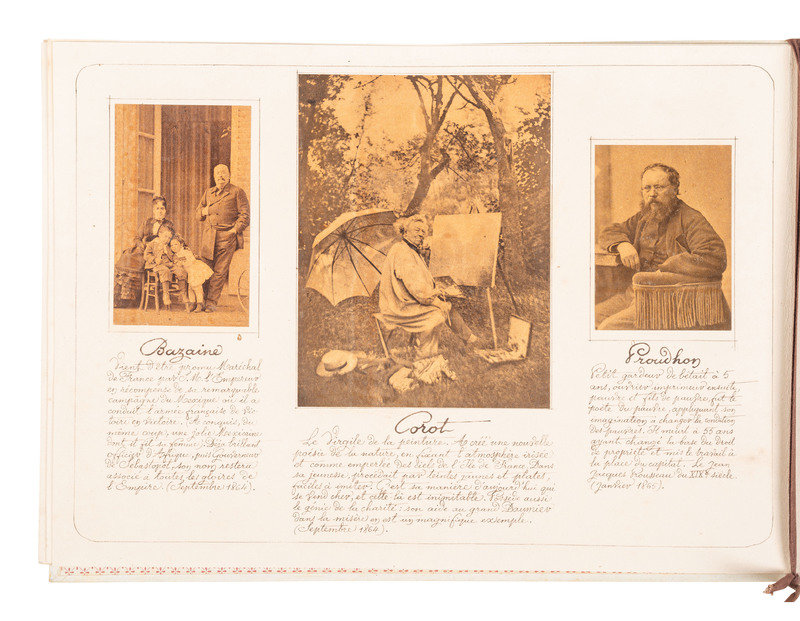 Bazaine
Vient d'être promu Maréchal
de France par S. M. l'Empereur
en récompense de sa remarquable
campagne du Mexique où il a
conduit l'armée française de vic-
toire en victoire. A conquis, du
même coup, une jolie Mexicaine
dont il fit sa femme. Sera brillant
officier d'Afrique, puis Gouverneur
de Sébastopol, son nom restera
associé à toutes les gloires de
l'Empire. (Septembre 1864).
Corot
Le Virgile de la peinture. A créé une nouvelle
poésie de la nature, en fixant l'atmosphère irisée
et comme emperlée des ciels de l'Ile de France. Dans
sa jeunesse, procédait par teintes jaunes et plates,
faciles à imiter. C'est sa manière d'aujourd'hui qui
se vend cher, et cette là est inimitable. Possède aussi
le génie de la charité: son aide au grand Daumier
dans la misère en est un magnifique exemple.
(Septembre 1864).
Proudhon
Petit gardeur de bétail à 5
ans, ouvrier imprimeur ensuite,
pauvre et fils de pauvre, fut le
poète du pauvre, appliquant son
imagination à changer la condition
des pauvres. Il mourut à 55 ans
ayant changé la base du droit
de propriété et mis le travail à
la place du capital. Le Jean
Jacques Rousseau du XIXe siècle.
(Janvier